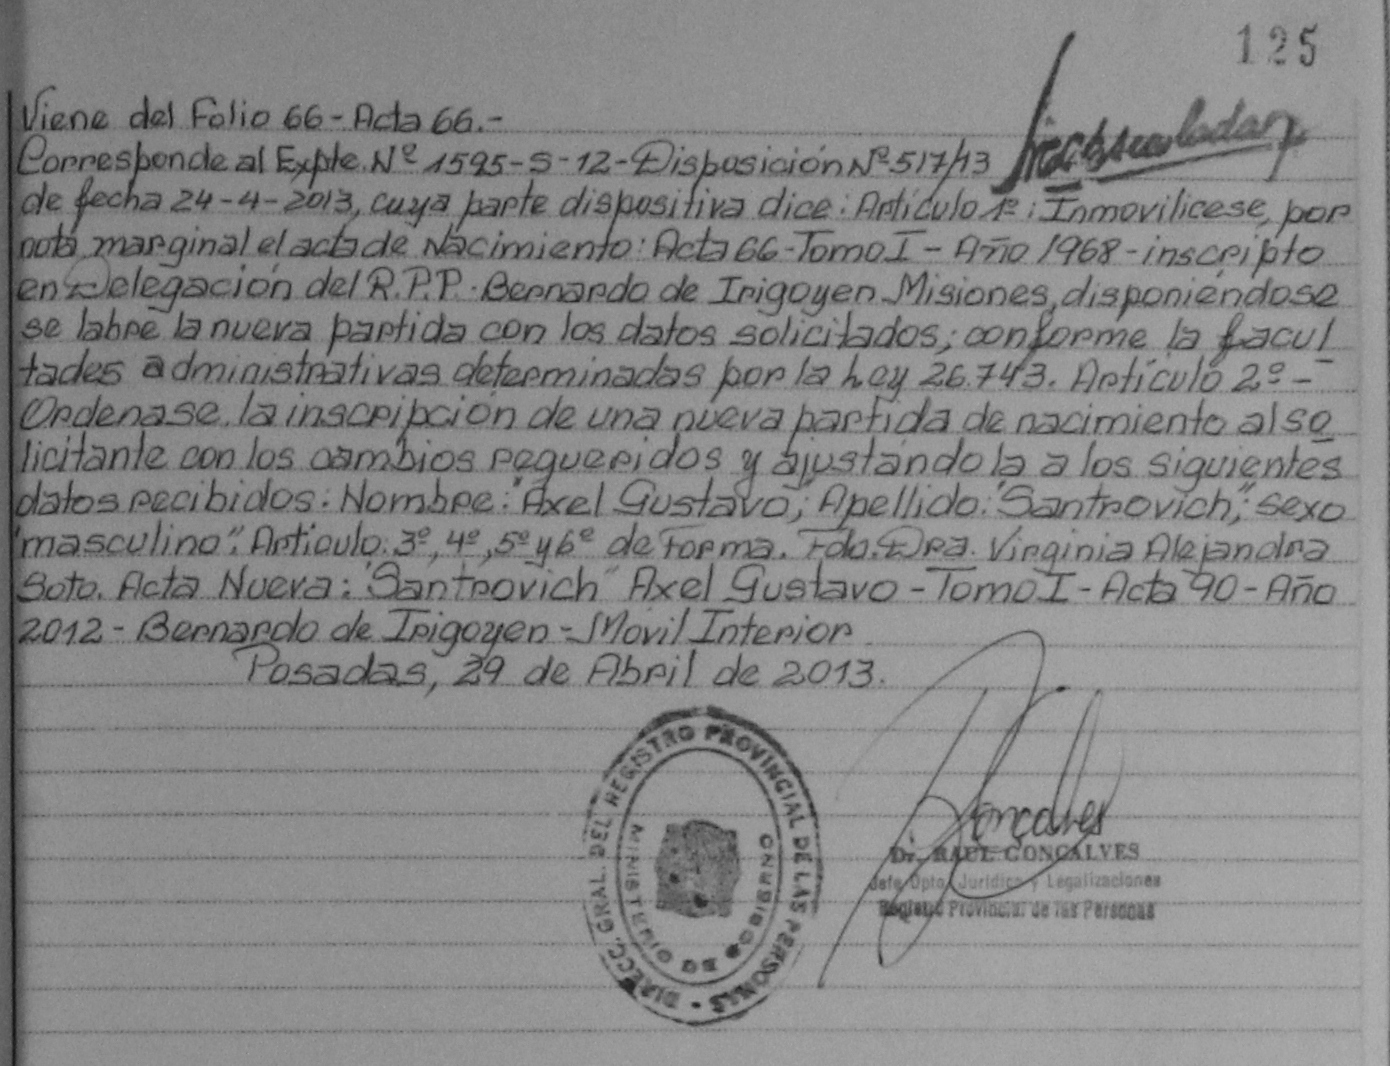 125
Viene del Folio 66 - Acta 66.-
Corresponde al Expte. Nº 1595-S-12-Disposición Nº 517/13
de fecha 24-4-2013, cuya parte dispositiva dice: Artículo 1º: Inmovilicese, por
nota marginal el acta de Nacimiento: Acta 66-Tomo I - Año 1968 - inscripto
en Delegación del R.P.P. Bernardo de Irigoyen Misiones, disponiéndose
se labre la nueva partida con los datos solicitados; conforme la facul
tades administrativas determinadas por la Ley 26.743. Artículo 2º -
Ordenase, la inscripción de una nueva partida de nacimiento al so
licitante con los cambios requeridos y ajustándola a los siguientes
datos recibidos: Nombre: "Axel Gustavo"; Apellido: "Santrovich"; sexo
"masculino". Artículo: 3º, 4º, 5º y 6º de Forma. Fdo. Dra. Virginia Alejandra
Soto. Acta Nueva: "Santrovich" Axel Gustavo - Tomo I - Acta 90 - Año
2012 - Bernardo de Irigoyen - Movil Interior
Posadas, 29 de Abril de 2013.
DIRECC. GRAL. DEL REGISTRO PROVINCIAL DE LAS PERSONAS -
MINISTERIO DE GOBIERNO
Gonçalves
Dr. RAUL GONÇALVES
Jefe Dpto. Jurídico y Legalizaciones
Registro Provincial de las Personas